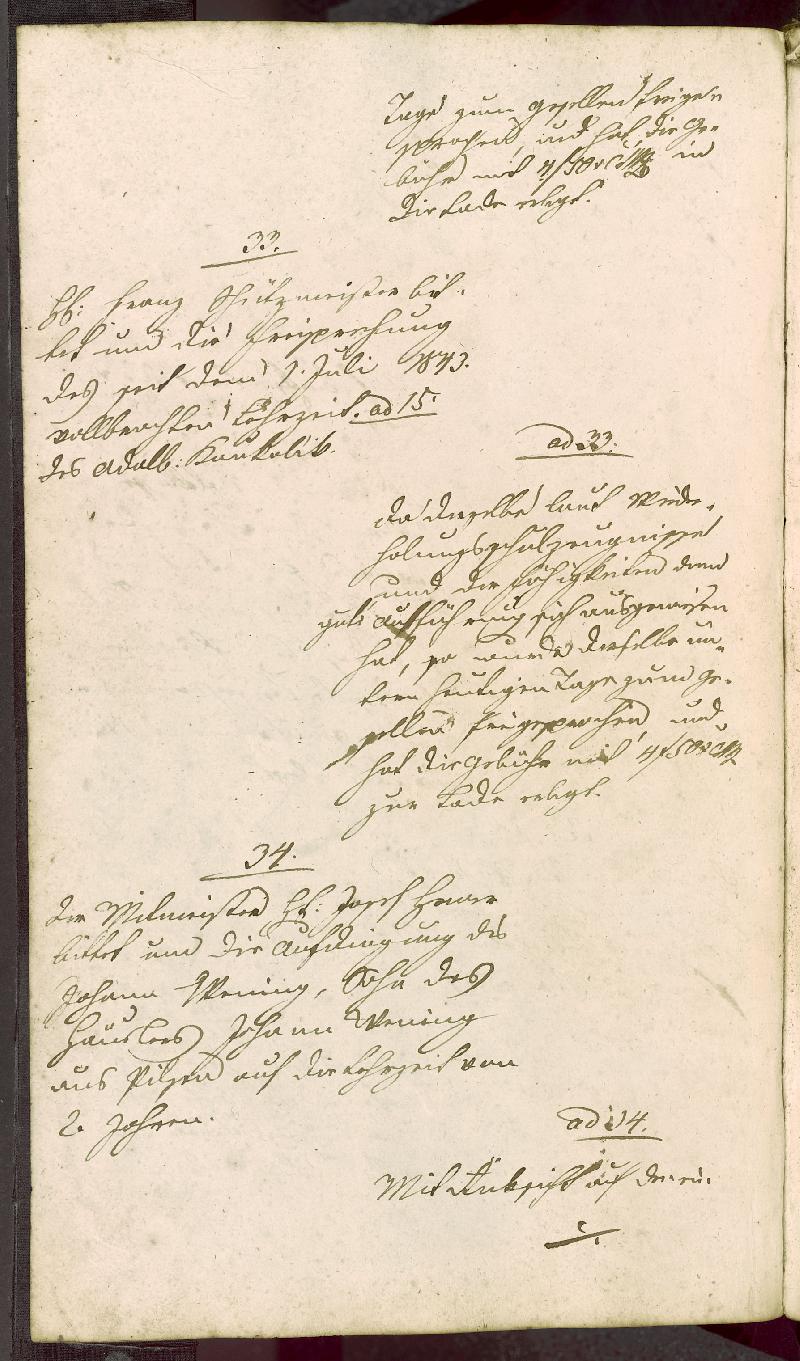 Tage zum Gesellen freige-
sprochen, und hat die Ge-
bühr mit 4 f 50 x CMz in
die Lade erlegt.
33.
H: Franz Schützmeister bit-
tet um die Freisprechung
des seit dem 1. Juli 1843.
vollbrachten Lehrzeit. ad 15
des Adalb: Kaukolik.
ad 33.
da derselbe laut Wieder-
holungsschulzeugnisse
und der Fähigkeiten dann
gute Aufführung sich ausgewiesen
hat, so wurde derselbe un-
term heutigen Tage zum Ge-
sellen freigesprochen, und
hat die Gebühr mit 4 f 50 x CMz
zur Lade erlegt.
34.
Der Mitmeister H: Josef
bittet um die Aufdingung des
Johann Wening, Sohn des
Häuslers Johann Wening
aus Pilsen auf die Lehrzeit von
2. Jahren.
ad 34.
Mit Rücksicht auf den ein-